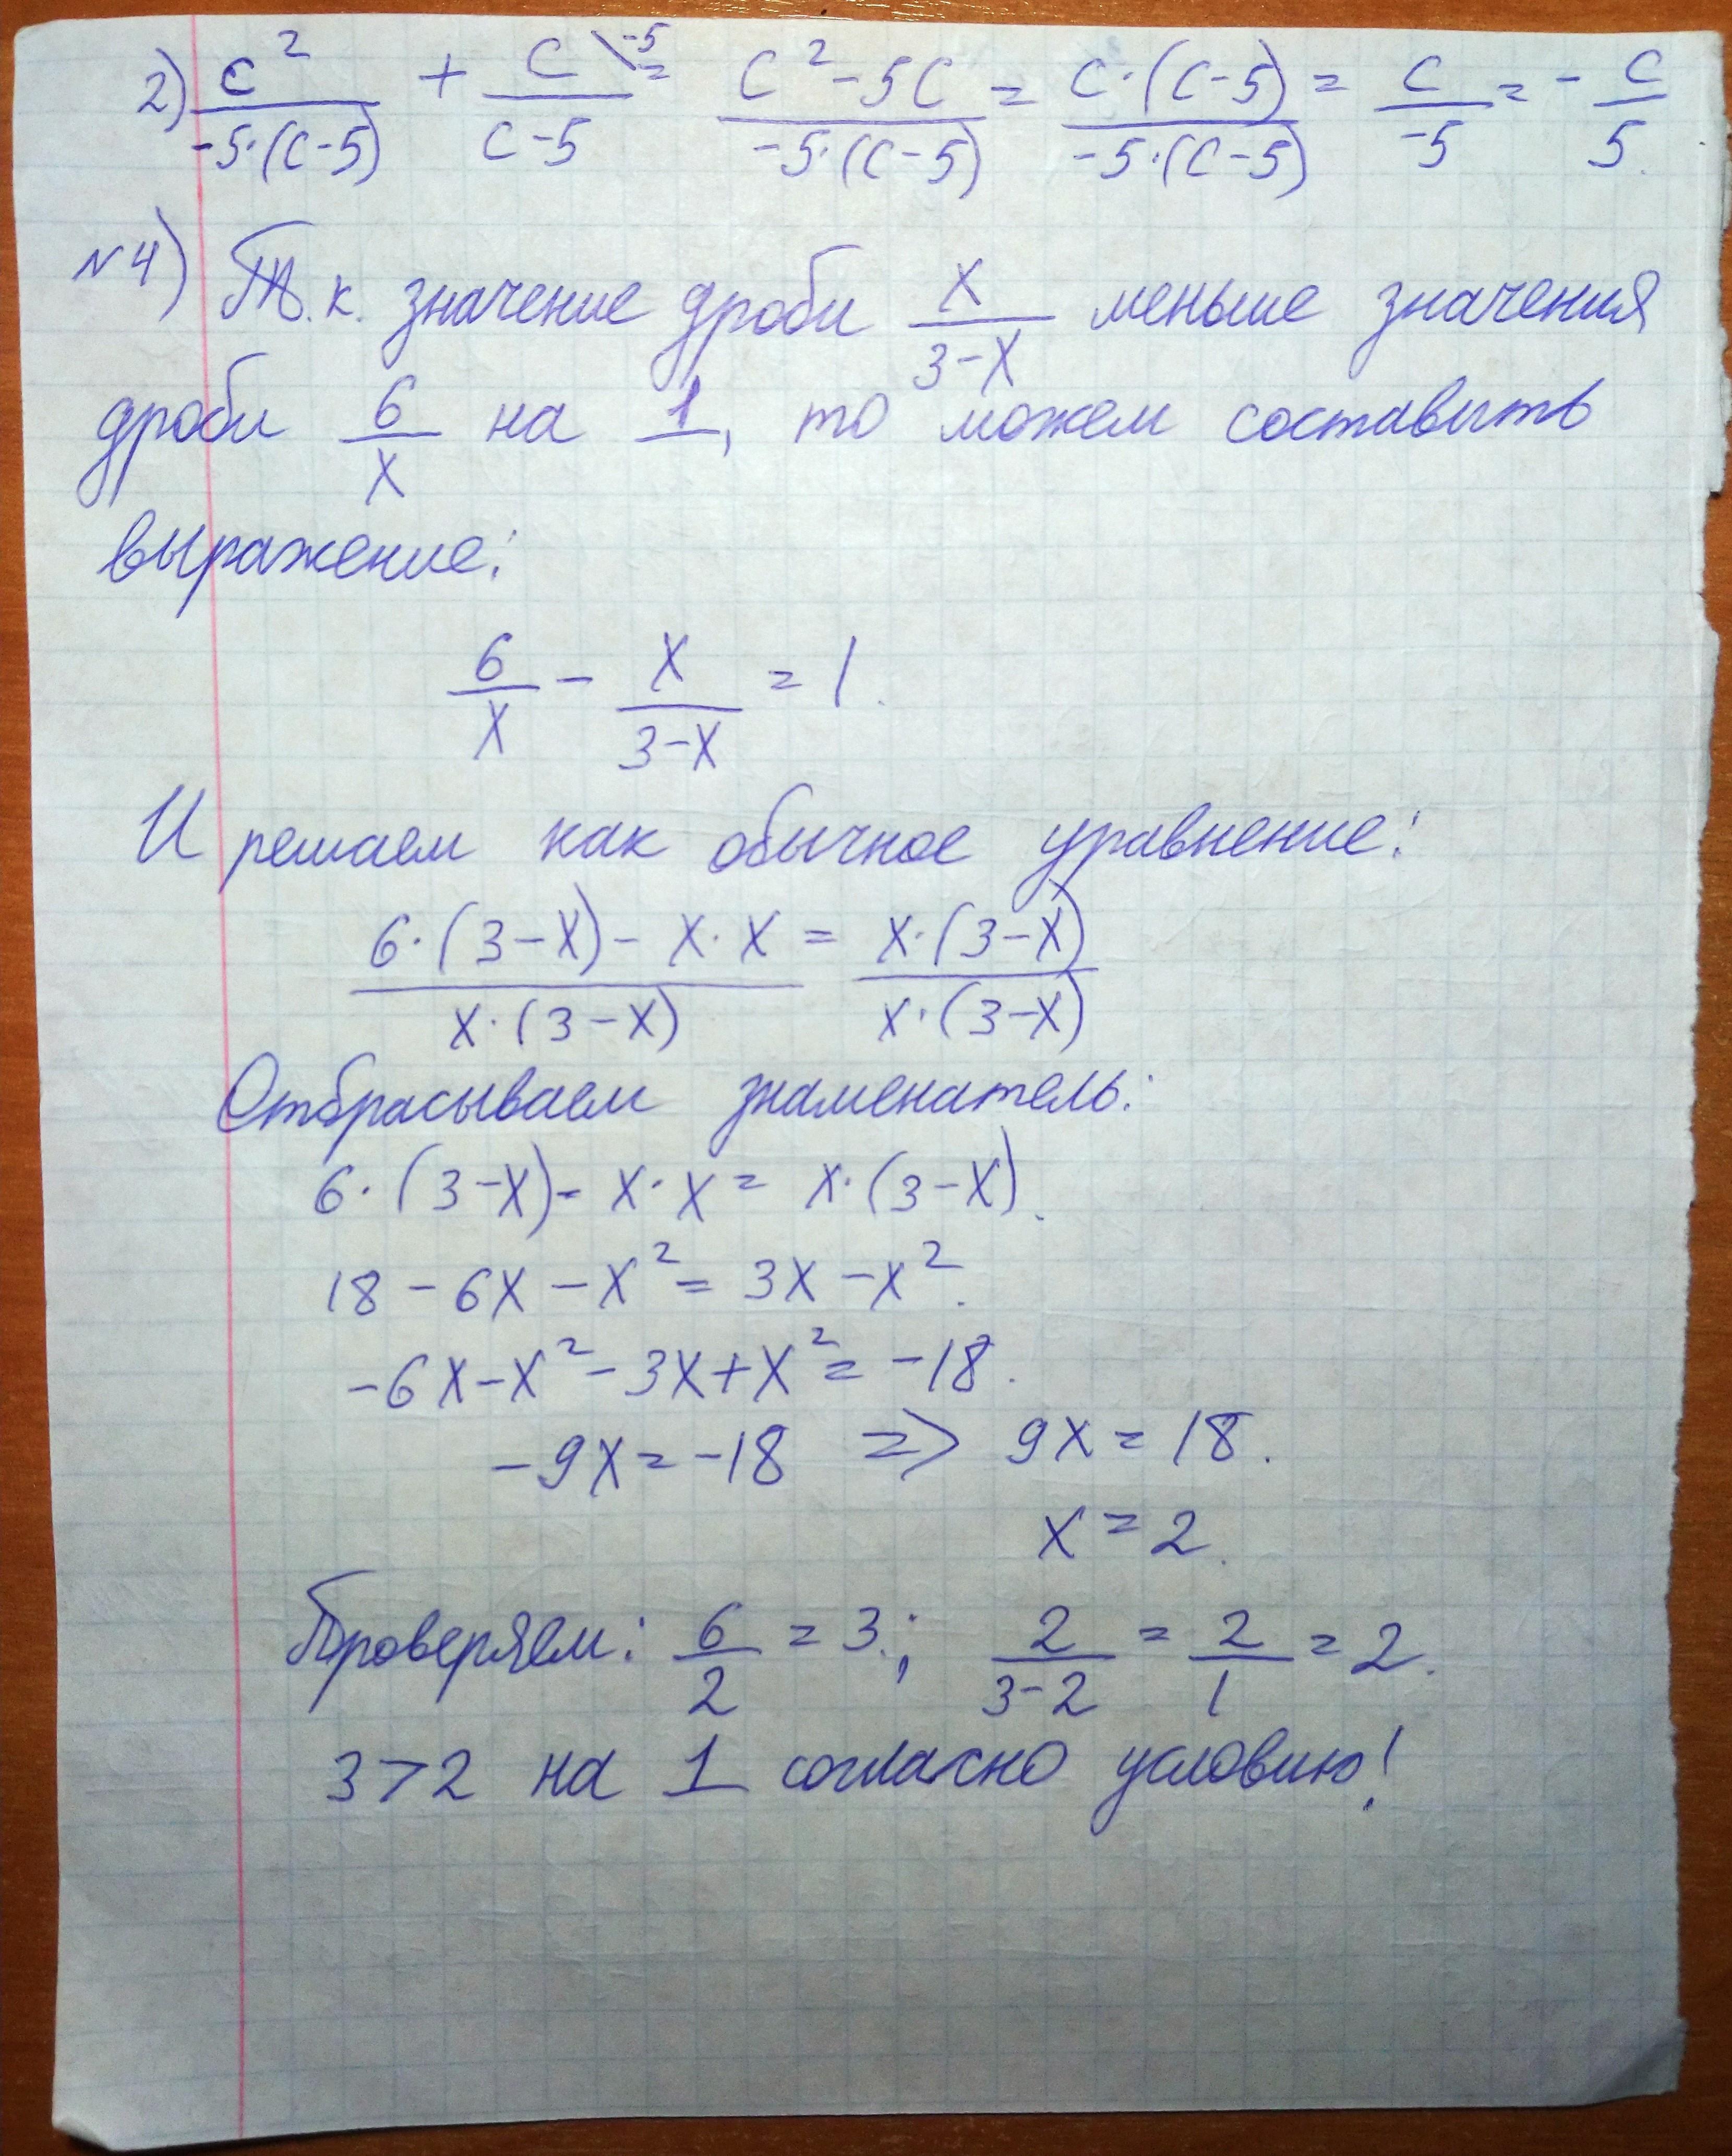 2) c²/(-5·(c-5)) + c\⁻⁵/(c-5) = (c²-5c)/(-5·(c-5)) = c·(c-5)/(-5·(c-5)) = c/(-5) = -c/5.
№4) Т.к. значение дроби x/(3-x) меньше значения
дроби 6/x на 1, то можем составить
выражение:
6/x - x/(3-x) = 1.
И решаем как обычное уравнение:
(6·(3-x) - x·x)/(x·(3-x)) = x·(3-x)/(x·(3-x))
Отбрасываем знаменатель:
6·(3-x) - x·x = x·(3-x).
18 - 6x - x² = 3x - x².
-6x - x² - 3x + x² = -18.
-9x = -18 => 9x = 18.
x = 2.
Проверяем: 6/2 = 3.; 2/(3-2) = 2/1 = 2.
3>2 на 1 согласно условию!